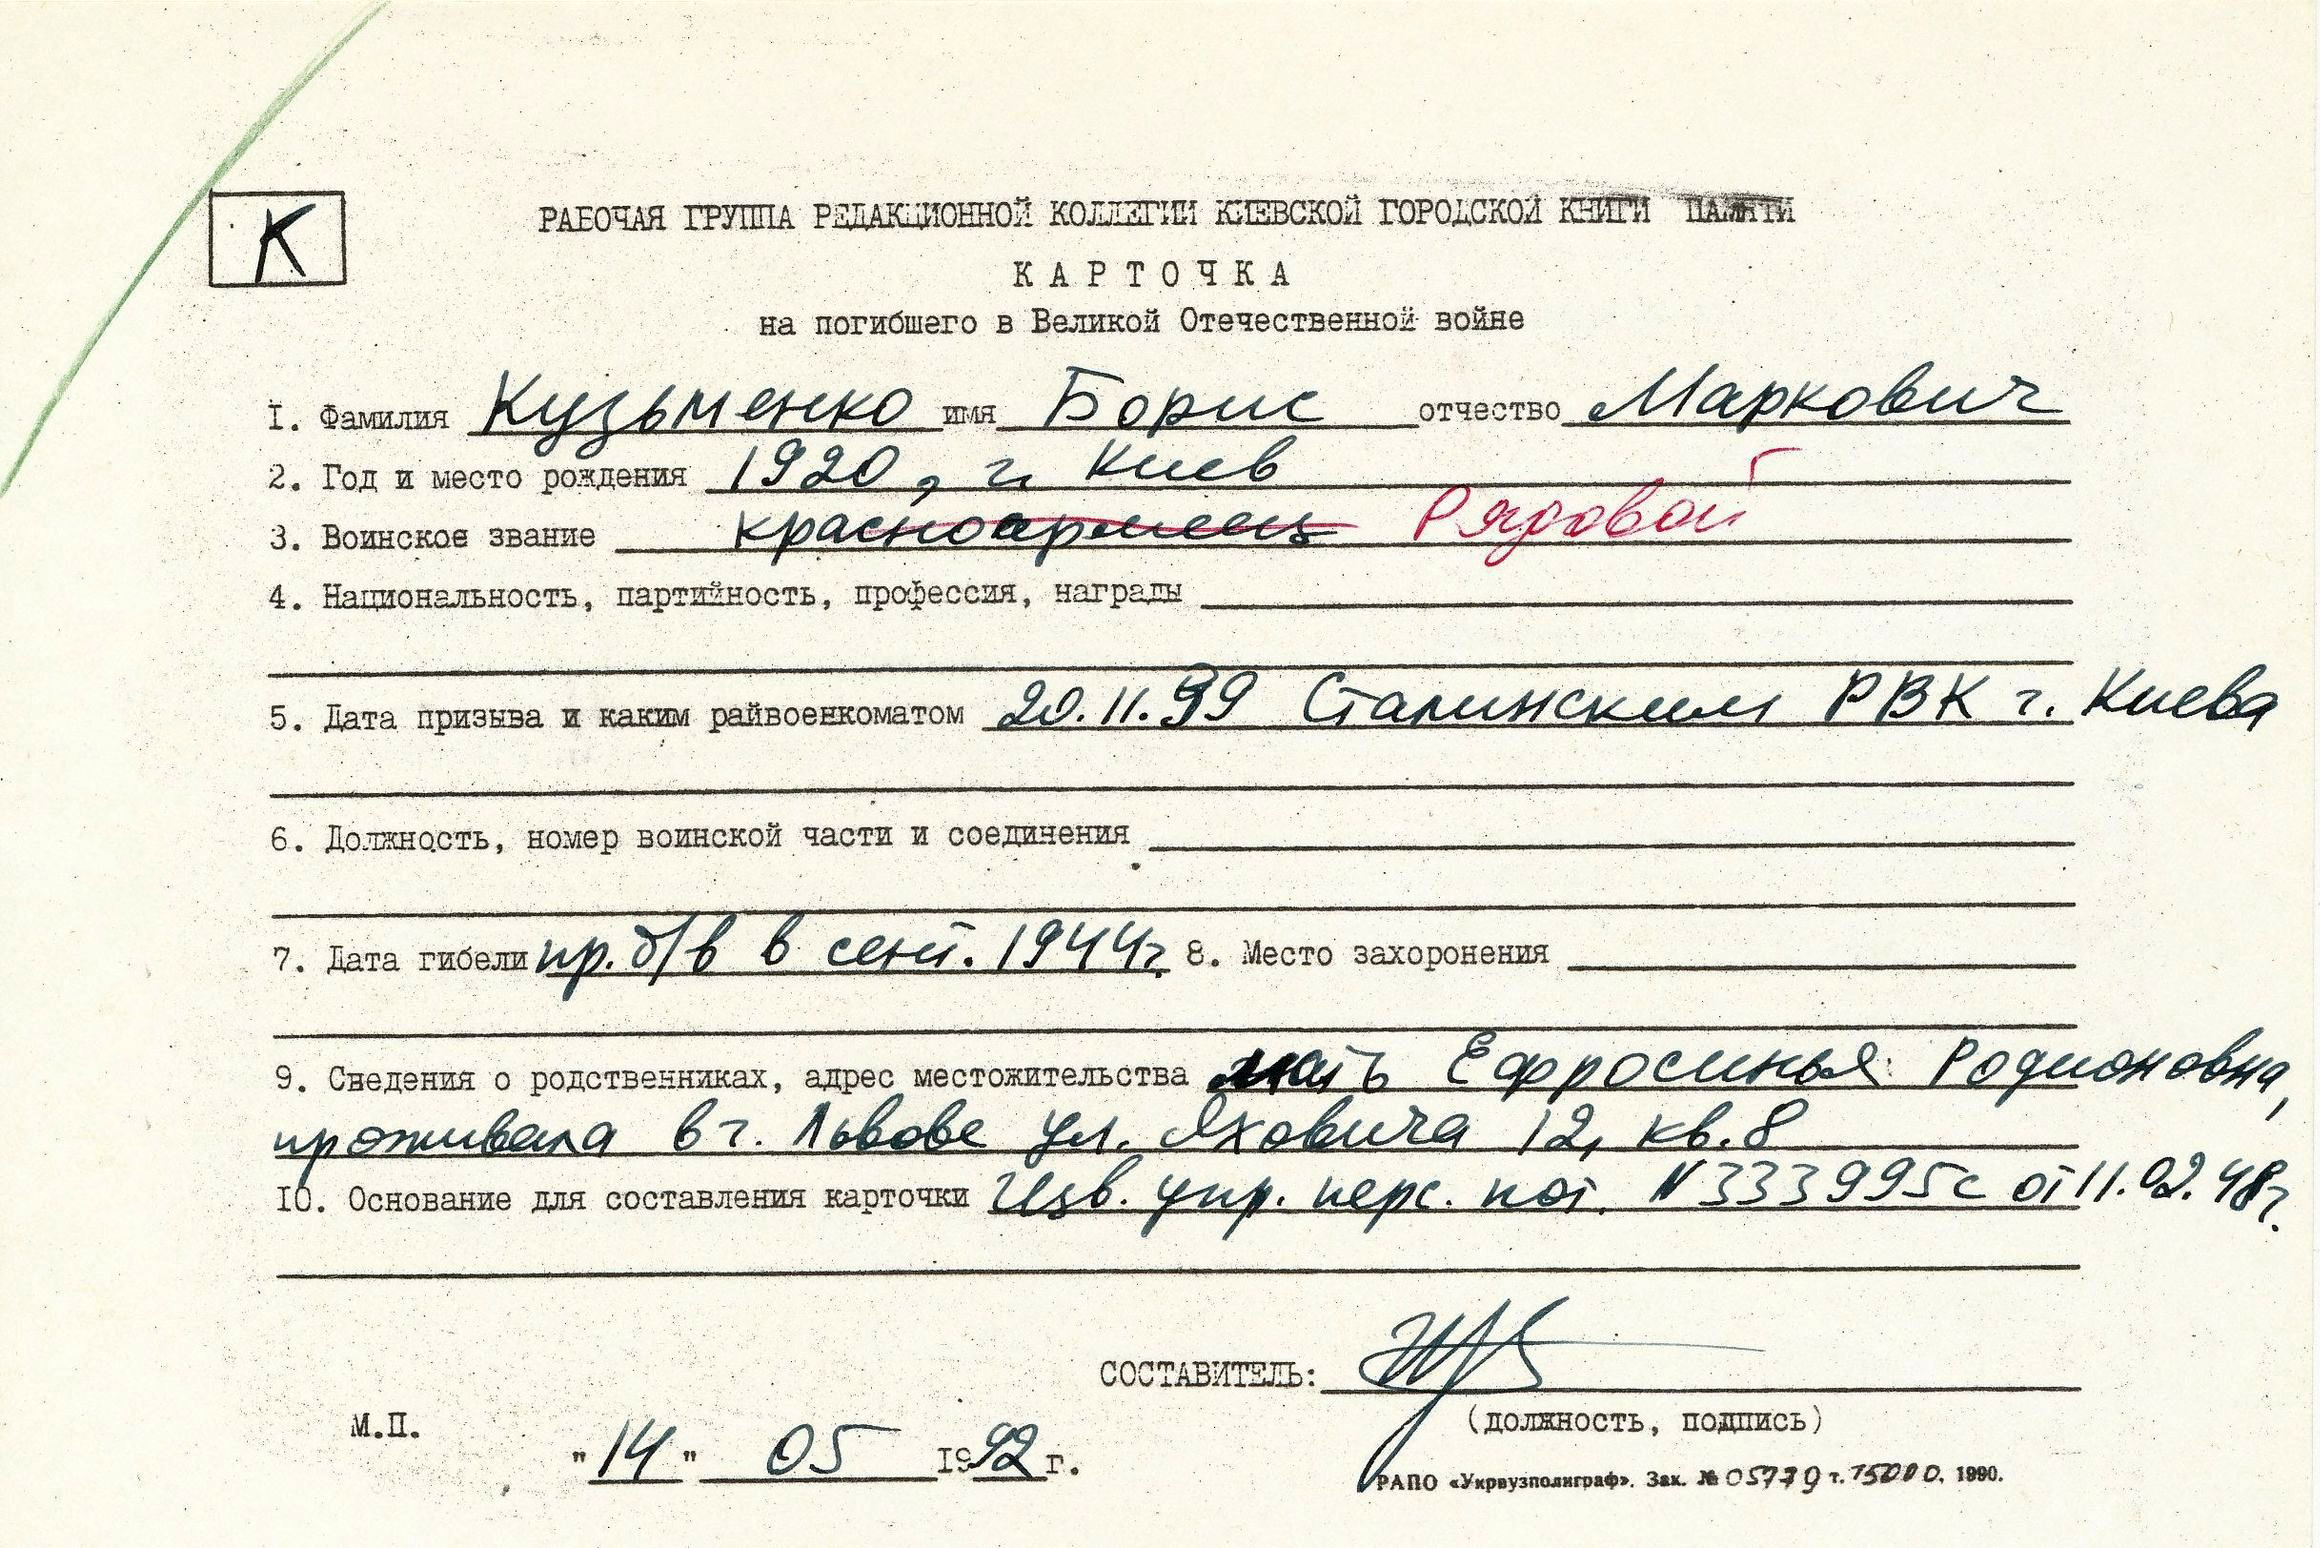 К
РАБОЧАЯ ГРУППА РЕДАКЦИОННОЙ КОЛЛЕГИИ КИЕВСКОЙ ГОРОДСКОЙ КНИГИ ПАМЯТИ
КАРТОЧКА
на погибшего в Великой Отечественной войне
1. Фамилия Кузьменко имя Борис отчество Маркович
2. Год и место рождения 1920, г. Киев
3. Воинское звание красноармеец Рядовой
4. Национальность, партийность, профессия, награды
5. Дата призыва и каким райвоенкоматом 20.11.39 Сталинским РВК г. Киева
6. Должность, номер воинской части и соединения
7. Дата гибели пр. б/в в сент. 1944г. 8. Место захоронения
9. Сведения о родственниках, адрес местожительства мать Ефросинья Родионовна,
проживала в г. Львове ул. Яховича 12, кв. 8
10. Основание для составления карточки Изв. упр. перс. пот. N 333995с от 11.02.48г.
СОСТАВИТЕЛЬ:
(должность, подпись)
М.П.
"14" 05 1992 г.
РАПО «Укрвузполиграф». Зак. № 05779 т. 15000. 1990.